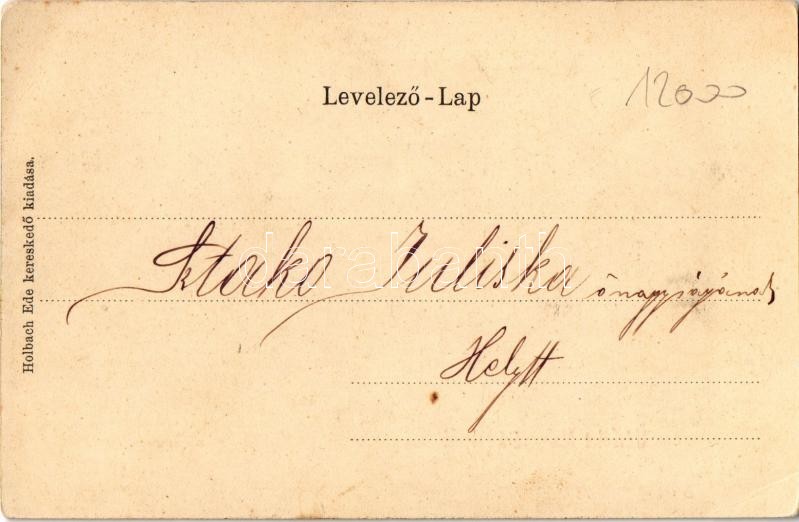 Levelező-Lap
12000
Holbach Ede kereskedő kiadása.
Sztako Juliska önagyságának
Helytt
darabanth